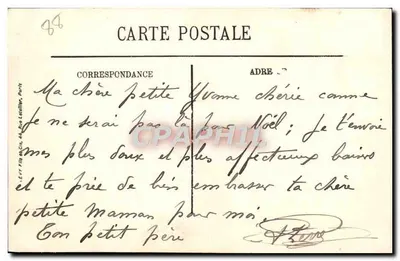 88
CARTE POSTALE
CORRESPONDANCE
ADRE
Ma chère petite Yvonne chérie comme
je ne serai pas là pour Noël ; je t'envoie
mes plus doux et plus affectueux baisers
et te prie de bien embrasser ta chère
petite Maman pour moi.
Ton petit père